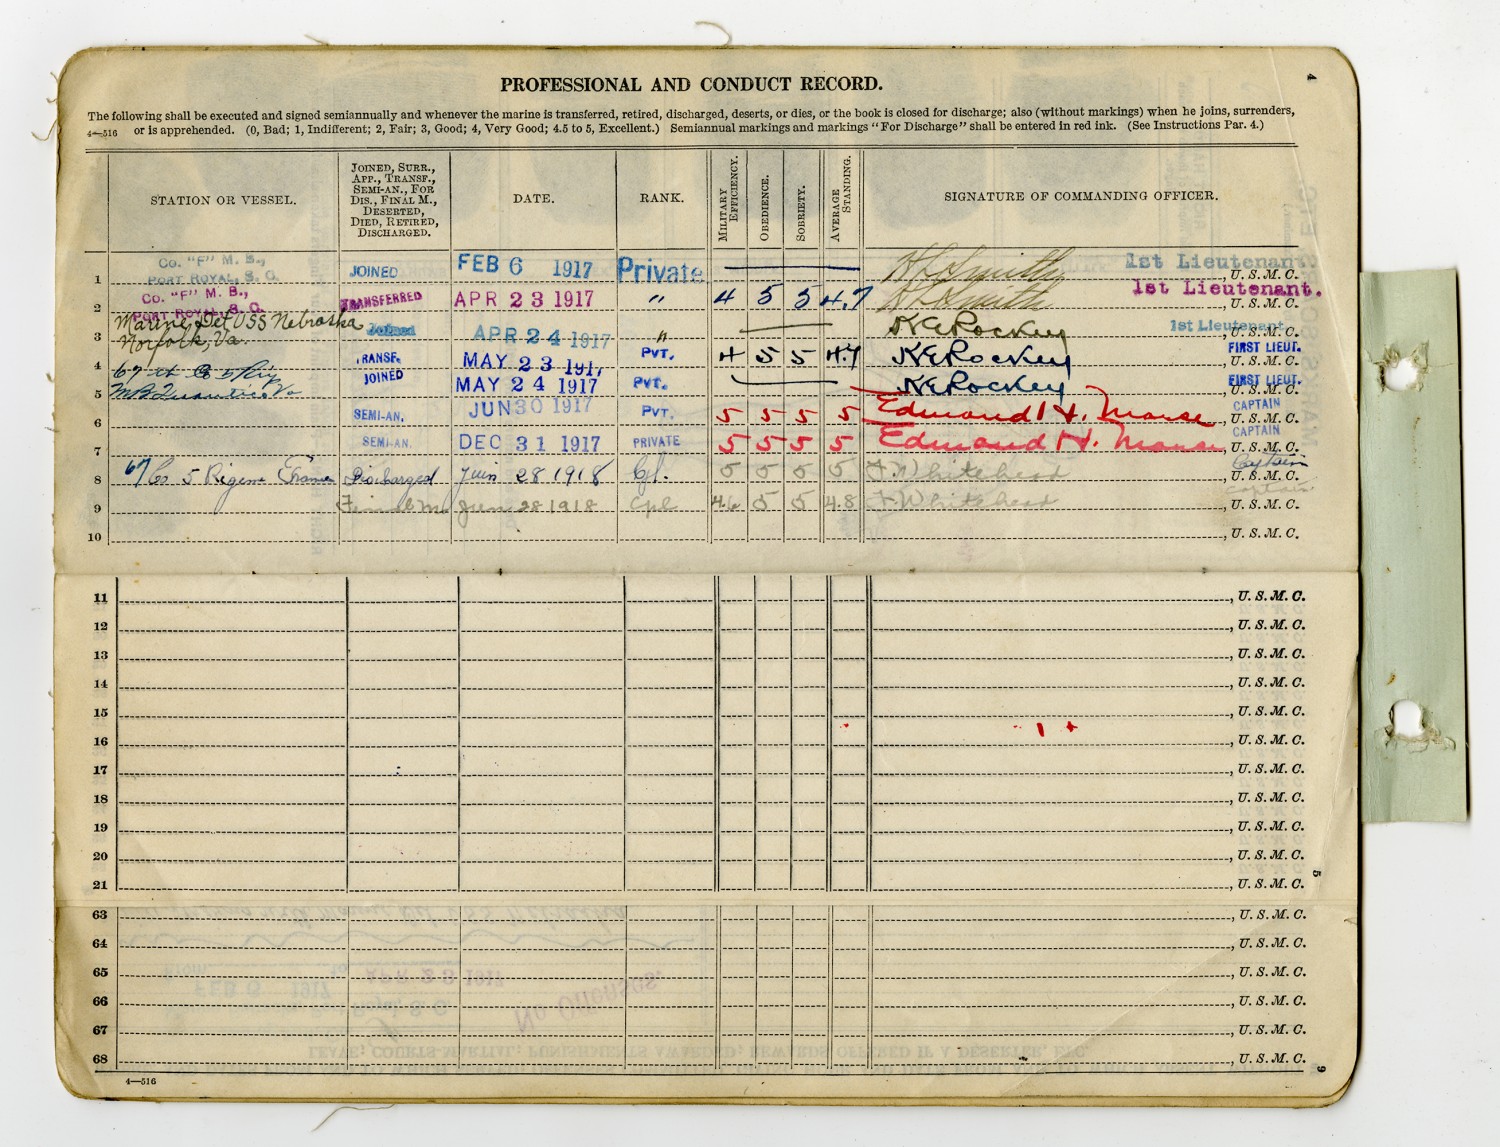 4
PROFESSIONAL AND CONDUCT RECORD.
The following shall be executed and signed semiannually and whenever the marine is transferred, retired, discharged, deserts, or dies, or the book is closed for discharge; also (without markings) when he joins, surrenders,
4—516 or is apprehended. (0, Bad; 1, Indifferent; 2, Fair; 3, Good; 4, Very Good; 4.5 to 5, Excellent.) Semiannual markings and markings "For Discharge" shall be entered in red ink. (See Instructions Par. 4.)
STATION OR VESSEL.
JOINED, SURR.,
APP., TRANSF.,
SEMI-AN., FOR
DIS., FINAL M.,
DESERTED,
DIED, RETIRED,
DISCHARGED.
DATE.
RANK.
MILITARY
EFFICIENCY.
OBEDIENCE.
SOBRIETY.
AVERAGE
STANDING.
SIGNATURE OF COMMANDING OFFICER.
Co. "F" M. B.,
PORT ROYAL, S. C.
1 JOINED FEB 6 1917 Private Smith 1st Lieutenant. , U. S. M. C.
Co. "F" M. B.,
PORT ROYAL, S. C.
2 TRANSFERRED APR 23 1917 " 4 5 5 4.7 Smith 1st Lieutenant. , U. S. M. C.
Marine Det USS Nebraska
Norfolk, Va.
3 Joined APR 24 1917 " K E Rockey 1st Lieutenant. , U. S. M. C.
4 TRANSF. MAY 23 1917 PVT. 4 5 5 4.7 K E Rockey FIRST LIEUT. , U. S. M. C.
67
M B Quantico Va
5 JOINED MAY 24 1917 PVT. K E Rockey FIRST LIEUT. , U. S. M. C.
6 SEMI-AN. JUN 30 1917 PVT. 5 5 5 5 Edmund H. Morse CAPTAIN , U. S. M. C.
7 SEMI-AN. DEC 31 1917 PRIVATE 5 5 5 5 Edmund H. Morse CAPTAIN , U. S. M. C.
8 67 Co 5 Regiment France Discharged Jun 28 1918 Cpl. 5 5 5 5 F. Whitehead Captain , U. S. M. C.
9 Final M. Jun 28 1918 Cpl 4.6 5 5 4.8 F. Whitehead Captain , U. S. M. C.
10 , U. S. M. C.
11 , U. S. M. C.
12 , U. S. M. C.
13 , U. S. M. C.
14 , U. S. M. C.
15 , U. S. M. C.
16 , U. S. M. C.
17 , U. S. M. C.
18 , U. S. M. C.
19 , U. S. M. C.
20 , U. S. M. C.
21 , U. S. M. C.
5
63 , U. S. M. C.
64 , U. S. M. C.
65 , U. S. M. C.
66 , U. S. M. C.
67 , U. S. M. C.
68 , U. S. M. C.
9
4—516